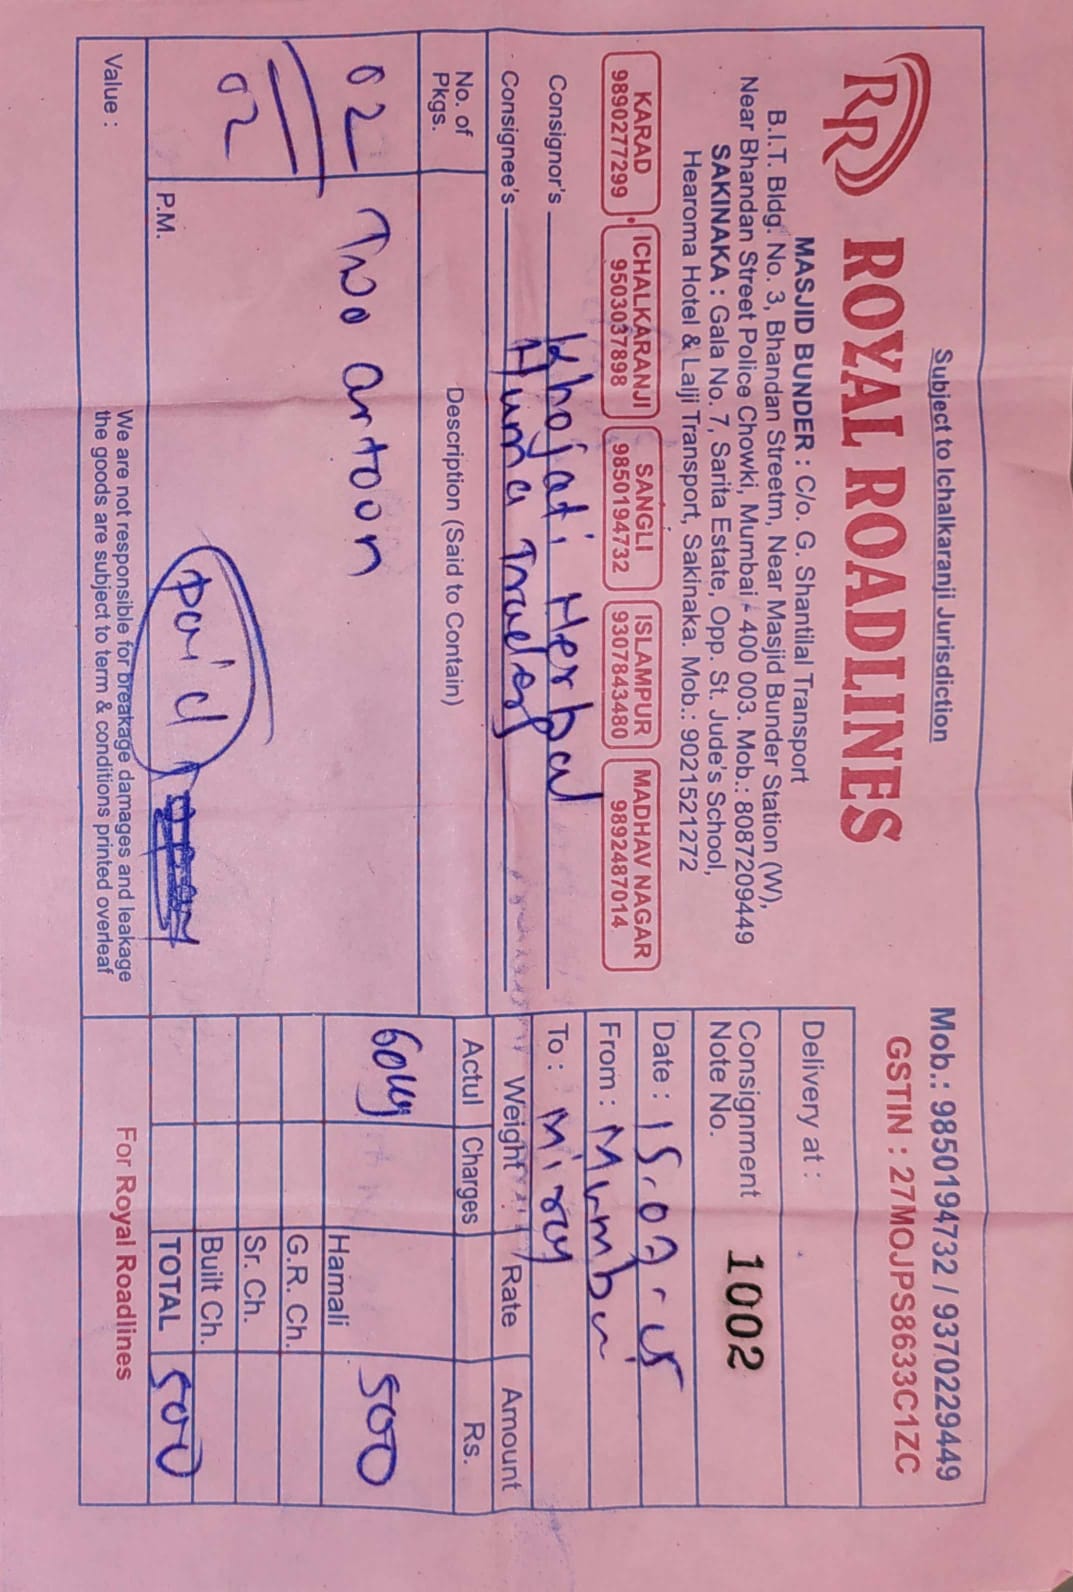 Subject to Ichalkaranji Jurisdiction
Mob.: 9850194732 / 9370229449
GSTIN : 27MOJPS8633C1ZC
RR ROYAL ROADLINES
MASJID BUNDER : C/o. G. Shantilal Transport
B.I.T. Bldg. No. 3, Bhandan Streetm, Near Masjid Bunder Station (W),
Near Bhandan Street Police Chowki, Mumbai - 400 003. Mob.: 8087209449
SAKINAKA : Gala No. 7, Sarita Estate, Opp. St. Jude's School,
Hearoma Hotel & Lalji Transport, Sakinaka. Mob.: 9021521272
KARAD 9890277299
ICHALKARANJI 9503037898
SANGLI 9850194732
ISLAMPUR 9307843480
MADHAV NAGAR 9892487014
Delivery at :
Consignment Note No. 1002
Date :
From : Mumbai
To : Miraj
Consignor's Khojati Herbal
Consignee's Huma Traders
No. of Pkgs.
Description (Said to Contain)
Weight
Actul
Charges
Rate
Amount Rs.
02 Two artoon
60kg
Hamali 500
02
G.R. Ch.
Sr. Ch.
Built Ch.
P.M.
paid
TOTAL 500
Value :
We are not responsible for breakage damages and leakage
the goods are subject to term & conditions printed overleaf
For Royal Roadlines